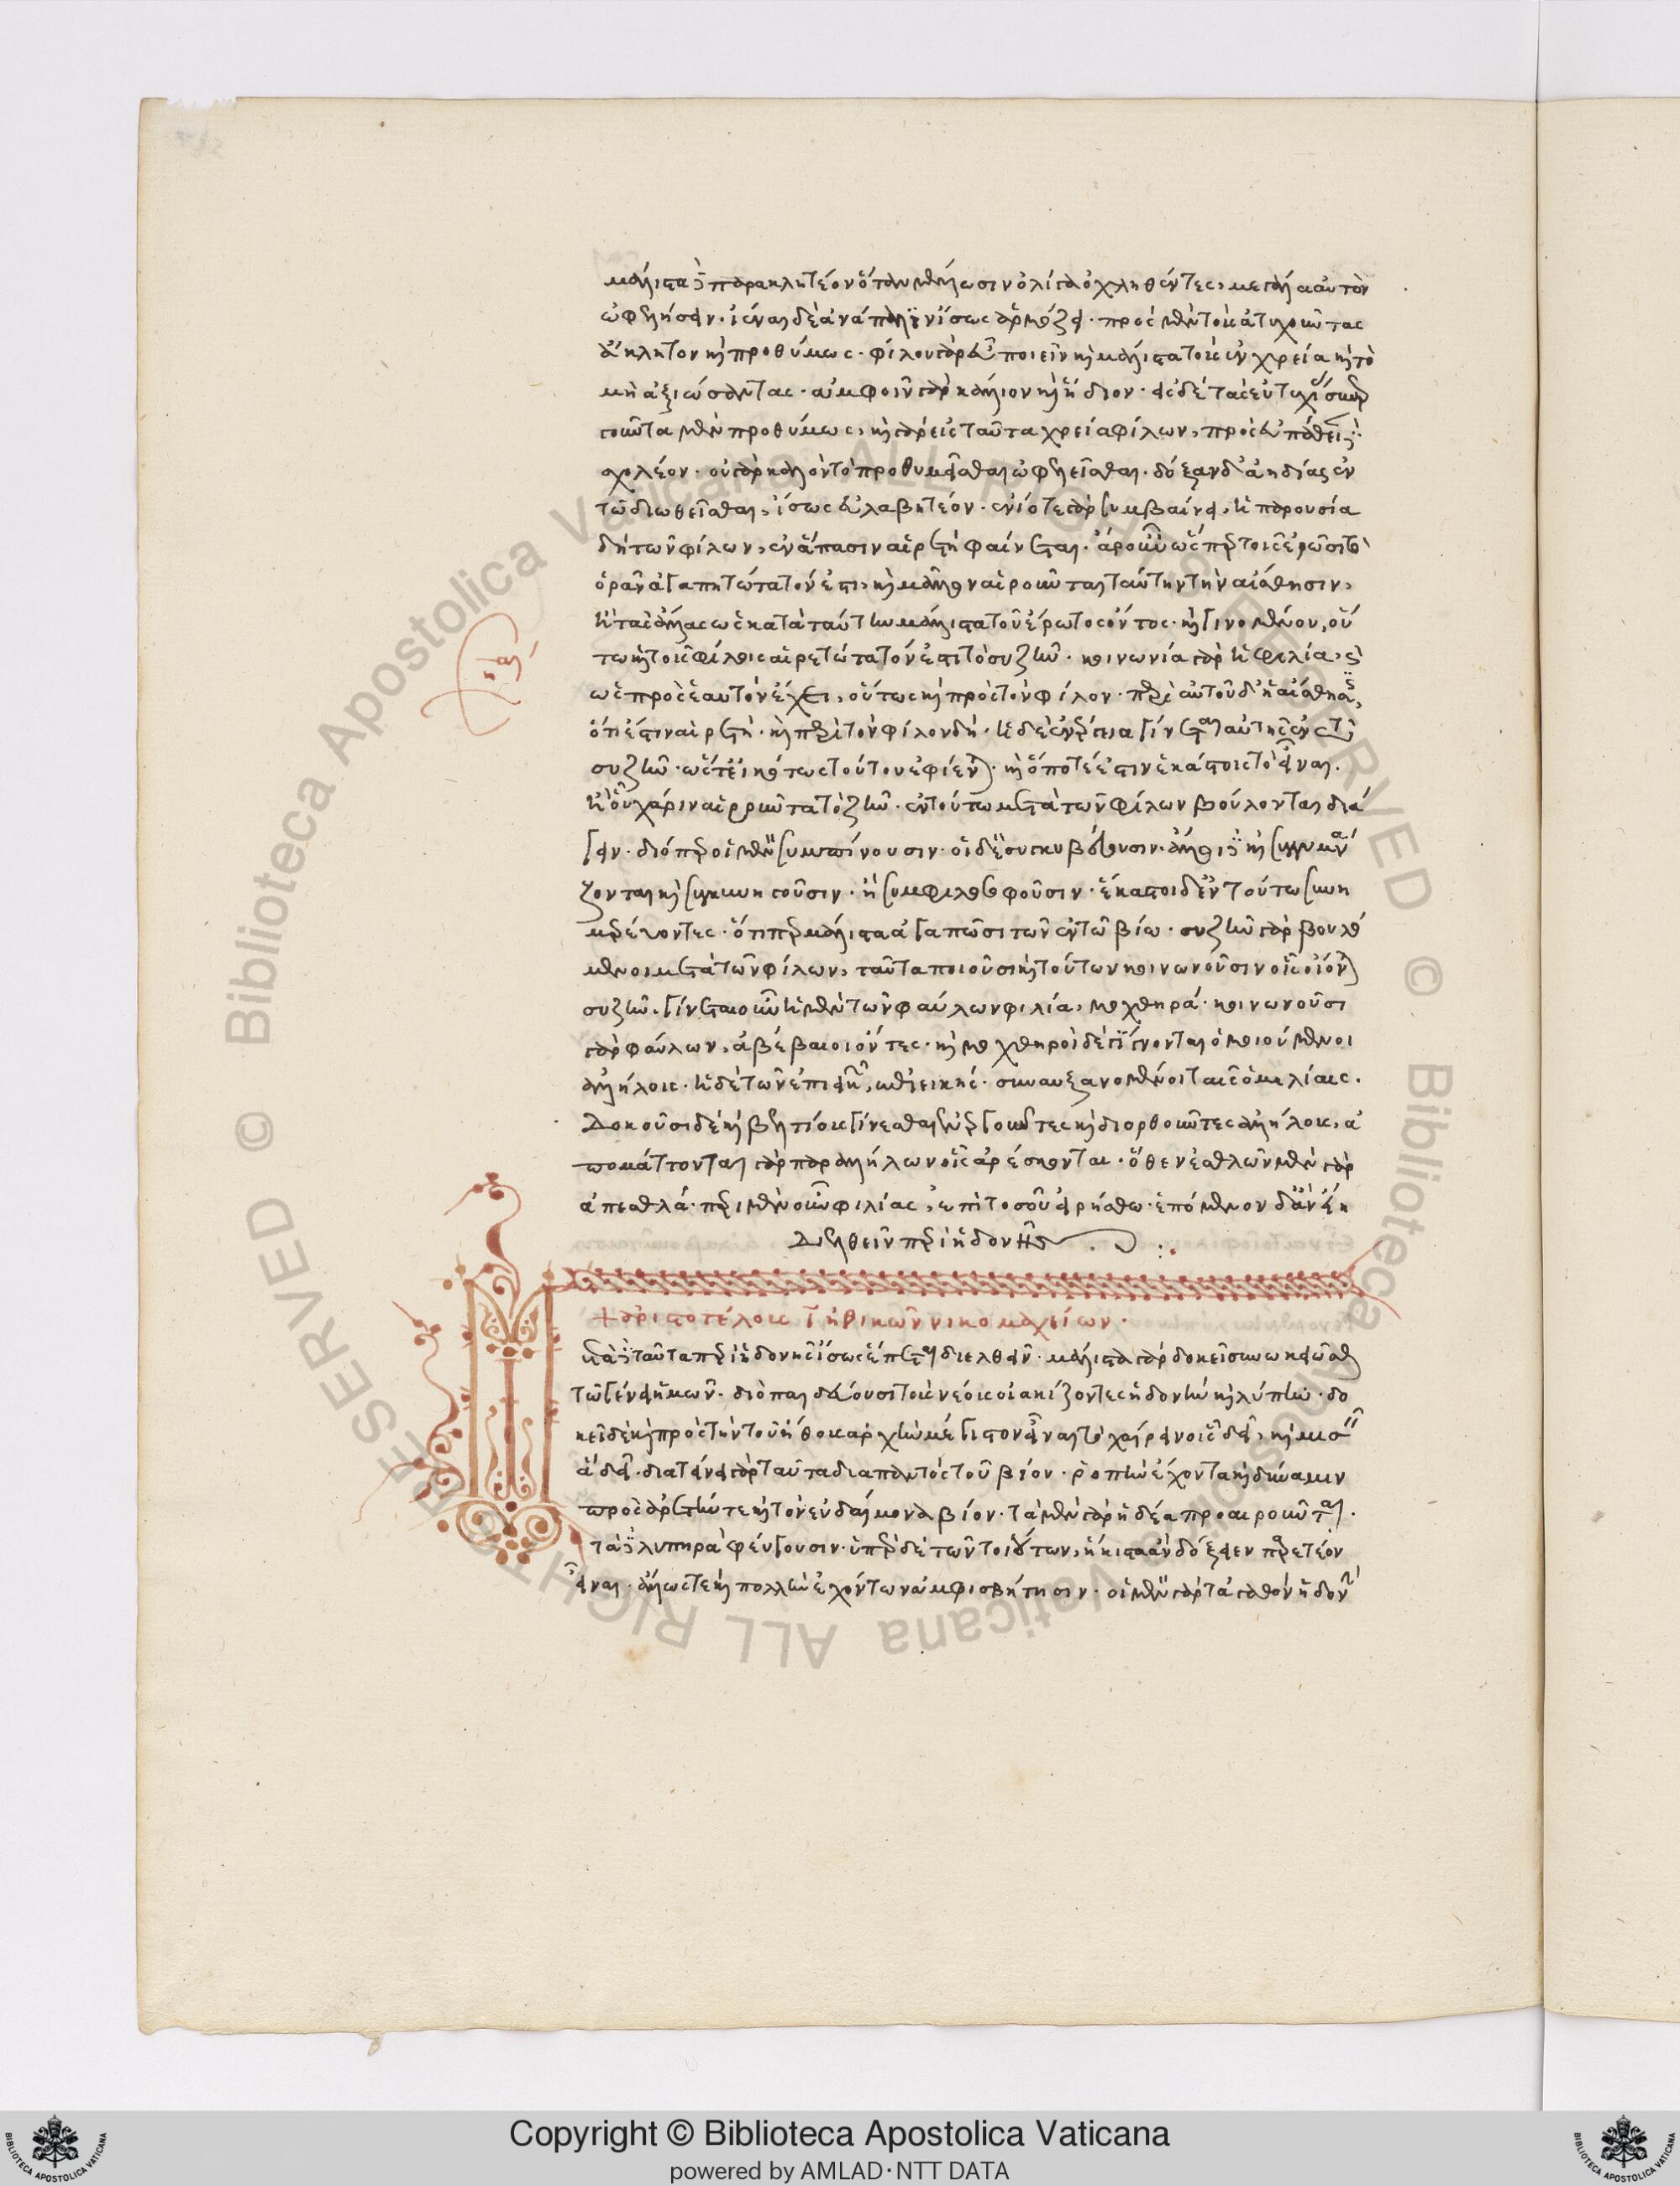 μάλιστα δὲ παρακλητέον ὅταν μέλλωσιν ὀλίγα ὀχληθέντες, μεγάλα αὐτὸν
ὠφελήσειν· ἰέναι δὲ ἀνάπαλιν ἴσως ἁρμόζει· πρὸς μὲν τοὺς ἀτυχοῦντας
ἄκλητον καὶ προθύμως· φίλου γὰρ εὖ ποιεῖν καὶ μάλιστα τοὺς ἐν χρεία καὶ τὸ
μὴ ἀξιώσαντας· ἀμφοῖν γὰρ κάλλιον καὶ ἥδιον· εἰς δὲ τὰς εὐτυχίας συνερ
γοῦντα μὲν προθύμως, καὶ γὰρ εἰς ταῦτα χρεία φίλων, πρὸς εὐπάθειαν δὲ
σχολέον· οὐ γὰρ καλὸν τὸ προθυμεῖσθαι ὠφελεῖσθαι· δόξαν δ' ἀηδίας ἐν
τῶ διωθεῖσθαι, ἴσως εὐλαβητέον· ἐνίοτε γὰρ συμβαίνει, ἡ παρουσία
δὴ τῶν φίλων, ἐν ἅπασιν αἱρετὴ φαίνεται· ἆρ οὖν ὥσπερ τοῖς ἐρῶσι τὸ
ὁρᾶν ἀγαπητώτατόν ἐστι, καὶ μᾶλλον αἱροῦνται ταύτην τὴν αἴσθησιν,
ἢ τὰς ἄλλας ὡς κατὰ ταύτην μάλιστα τοῦ ἔρωτος ὄντος· καὶ γινομένου, οὕ
τω καὶ τοῖς φίλοις αἱρετώτατόν ἐστι τὸ συζῆν· κοινωνία γὰρ ἡ φιλία, καὶ
ὡς πρὸς ἑαυτὸν ἔχει, οὕτως καὶ πρὸς τὸν φίλον· περὶ αὐτοῦ δ' ἡ αἴσθησις,
ὅτι ἔστιν αἱρετή· καὶ περὶ τὸν φίλον δή· ἡ δὲ ἐνέργεια γίνεται αὐτῆς ἐν τῶ
συζῆν· ὥστ' εἰκότως τούτου ἐφίενται· καὶ ὅ ποτέ ἐστιν ἑκάστοις τὸ εἶναι.
ἢ οὗ χάριν αἱροῦνται τὸ ζῆν· ἐν τούτω μετὰ τῶν φίλων βούλονται διά
γειν· διόπερ οἱ μὲν συμπίνουσιν· οἱ δὲ συγκυβεύουσιν· ἄλλοι δὲ καὶ συγγυμνά
ζονται καὶ συγκυνηγοῦσιν· ἢ συμφιλοσοφοῦσιν· ἕκαστοι δ' ἐν τούτω συνη
μερεύοντες· ὅτι περ μάλιστα ἀγαπῶσι τῶν ἐν τῶ βίω· συζῆν γὰρ βουλό
μενοι μετὰ τῶν φίλων, ταῦτα ποιοῦσι καὶ τούτων κοινωνοῦσιν οἷς οἴονται
συζῆν. γίνεται οὖν ἡ μὲν τῶν φαύλων φιλία, μοχθηρά· κοινωνοῦσι
γὰρ φαύλων, ἀβέβαιοι ὄντες· καὶ μοχθηροὶ δὲ γίνονται ὁμοιούμενοι
ἀλλήλοις· ἡ δὲ τῶν ἐπιεικῶν, ἐπιεικής· συναυξανομένοι ταῖς ὁμιλίαις.
Δοκοῦσι δὲ καὶ βελτίους γίνεσθαι ἐνεργοῦντες καὶ διορθοῦντες ἀλλήλους, ἀ
πομάττονται γὰρ παρ ἀλλήλων οἷς ἀρέσκονται· ὅθεν ἐσθλῶν μὲν γὰρ
ἀπ ἐσθλά· περὶ μὲν οὖν φιλίας, ἐπὶ τοσοῦτον εἰρήσθω· ἑπόμενον δ' ἂν εἴη
διελθεῖν περὶ ἡδονῆς
+ ἀριστοτέλους ἠθικῶν νικομαχείων·
Μετὰ δὲ ταῦτα περὶ ἡδονῆς ἴσως ἕπεται διελθεῖν· μάλιστα γὰρ δοκεῖ συνωκειῶσθαι
τῶ γένει ἡμῶν· διὸ παιδεύουσι τοὺς νέους οἰακίζοντες ἡδονῆ καὶ λύπη· δο
κεῖ δὲ καὶ πρὸς τὴν τοῦ ἤθους ἀρχὴν μέγιστον εἶναι τὸ χαίρειν οἷς δεῖ, καὶ μισεῖν
ἃ δεῖ· διατείνει γὰρ ταῦτα διαπαντὸς τοῦ βίου· ῥοπὴν ἔχοντα καὶ δύναμιν
πρὸς ἀρετήν τε καὶ τὸν εὐδαίμονα βίον· τὰ μὲν γὰρ ἡδέα προαιροῦνται.
τὰ δὲ λυπηρὰ φεύγουσιν· ὑπὲρ δὲ τῶν τοιούτων, ἥκιστα ἂν δόξειεν παρετέον
εἶναι· ἄλλως τε καὶ πολλὴν ἐχόντων ἀμφισβήτησιν· οἱ μὲν γὰρ τἀγαθὸν ἡδονὴν
Copyright © Biblioteca Apostolica Vaticana
powered by AMLAD·NTT DATA